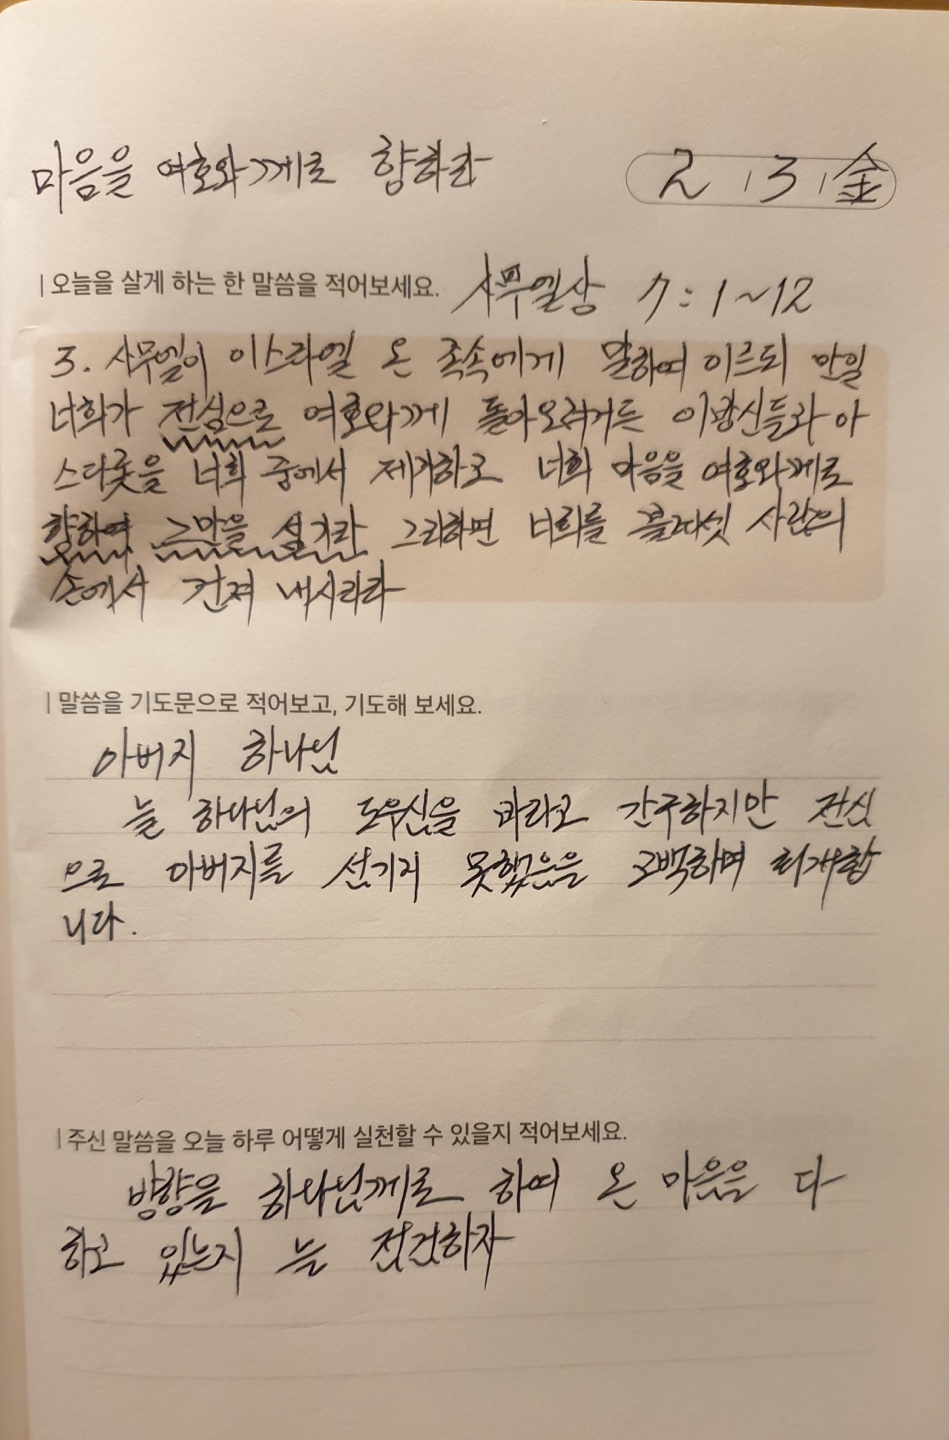 마음을 여호와께로 향하라
2 , 3 , 金
| 오늘을 살게 하는 한 말씀을 적어보세요. 사무엘상 7 : 1 ~ 12
3. 사무엘이 이스라엘 온 족속에게 말하여 이르되 만일
너희가 전심으로 여호와께 돌아오려거든 이방신들과 아
스다롯을 너희 중에서 제거하고 너희 마음을 여호와께로
향하여 그만을 섬기라 그리하면 너희를 블레셋 사람의
손에서 건져 내시리라
| 말씀을 기도문으로 적어보고, 기도해 보세요.
아버지 하나님
늘 하나님의 도우심을 바라고 간구하지만 전심
으로 아버지를 섬기지 못했음을 고백하며 회개합
니다.
| 주신 말씀을 오늘 하루 어떻게 실천할 수 있을지 적어보세요.
방향을 하나님께로 하여 온 마음을 다
하고 있는지 늘 점검하자